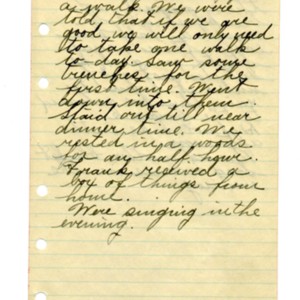 a walk. We were
told that if we are
good we will only need
to take one walk
to-day. Saw some
trenches for the
first time. Went
down into them.
Staid out till near
dinner time. We
rested in a woods
for an half hour.
Frank received a
box of things from
home.
Were singing in the
evening.